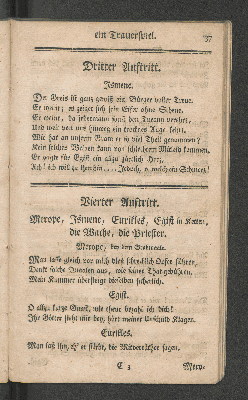 ein Trauerspiel. 37
Dritter Auftritt.
Ismene.
Der Greis ist ganz gewiß ein Bürger voller Treue.
Er weint; es zeiget sich sein Eifer ohne Scheue.
Er weint, da jedermann sonst den Tyrann verehrt,
Und weil von uns hinweg ein trocknes Auge kehrt.
Wie hat an unserm Gram er so viel Theil genommen?
Kein solches Weinen kann von schlechtem Mitleid kommen.
Er zeigte für Egist ein allzu zärtlich Herz,
Ach! ich will zu ihm hin .... Jedoch, o welch ein Schmerz!
Vierter Auftritt.
Merope, Ismene, Eurikles, Egist in Ketten,
die Wache, die Priester.
Merope, bey dem Grabmaale.
Man lasse gleich vor mich dieß schrecklich Opfer führen,
Denkt solche Martern aus, wie seiner That gebühren.
Mein Kummer übersteige dieselben sicherlich.
Egist.
O allzu kurze Gunst, wie theuer bezahl ich dich!
Ihr Götter steht mir bey, höret meiner Unschuld Klagen.
Eurikles.
Man laß ihn, eh' er stirbt, die Mitverräther sagen.
C 3 Mero-